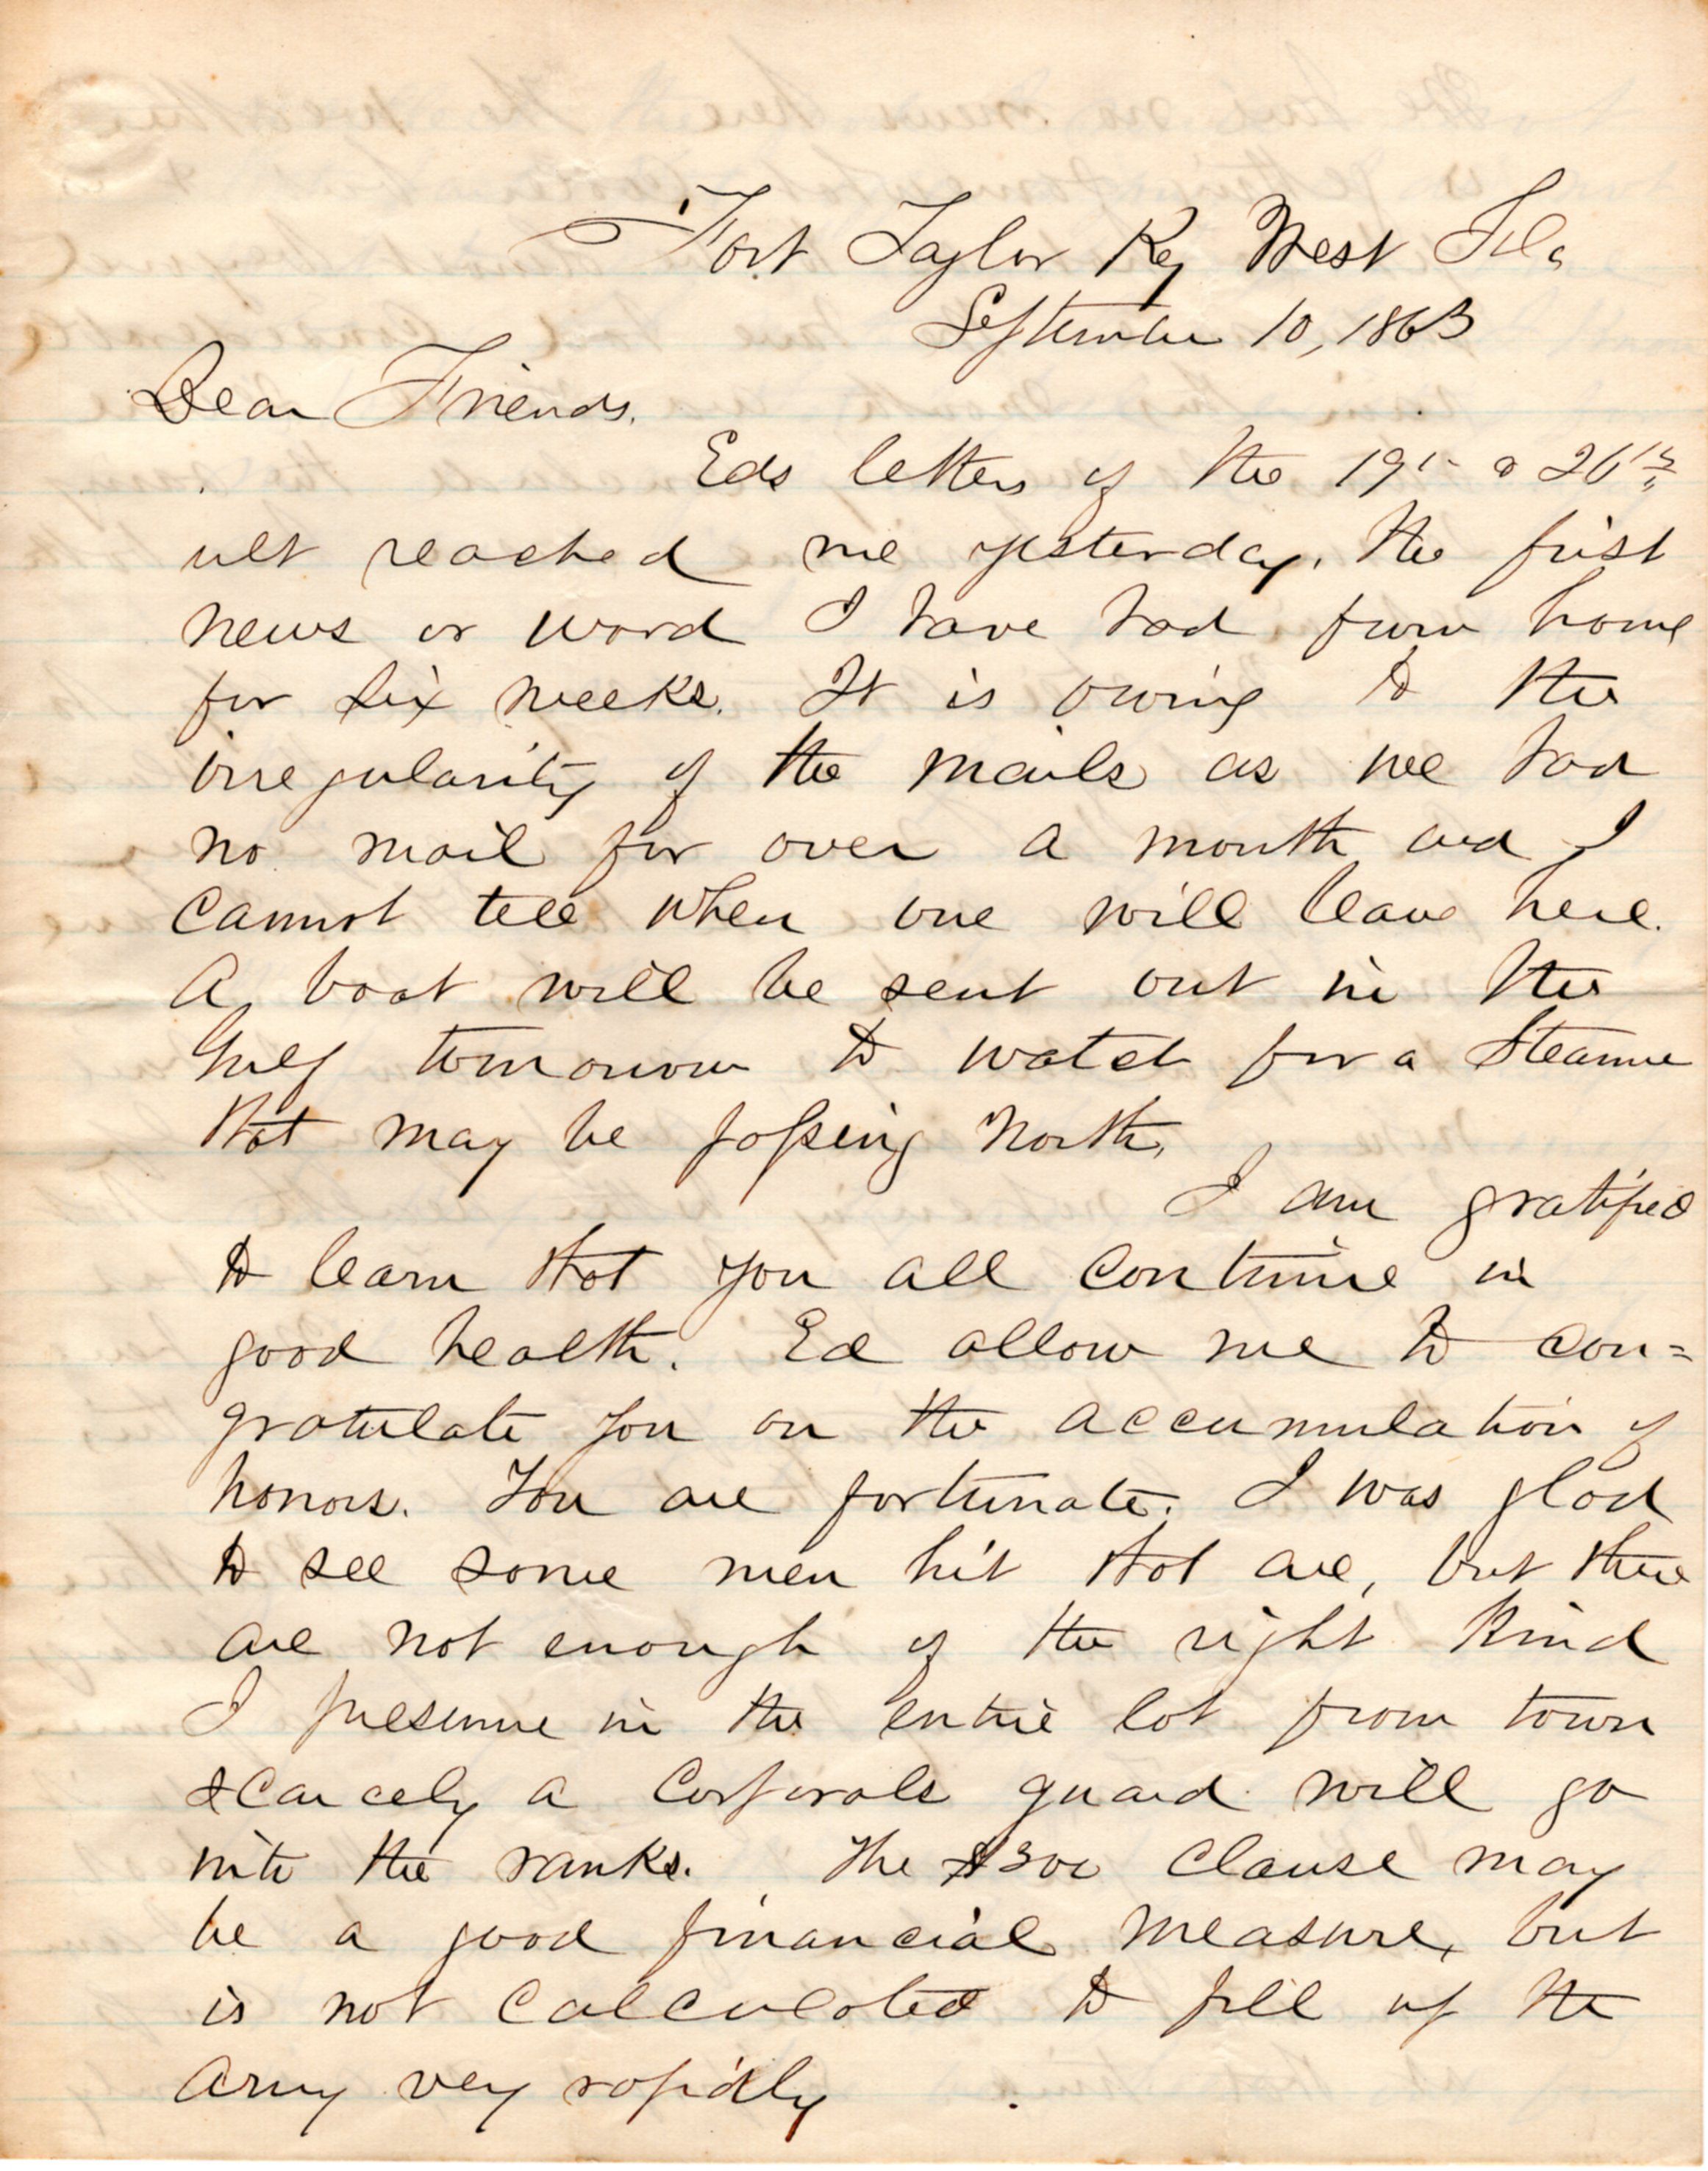 Fort Taylor Key West Fla
September 10, 1863
Dear Friends.
Eds letters of the 19th & 26th
ult reached me yesterday, the first
news or word I have had from home
for six weeks. It is owing to the
irregularity of the mails as we had
no mail for over a month and I
cannot tell when one will leave here.
A boat will be sent out in the
Gulf tomorrow to watch for a Steamer
that may be passing North,
I am gratified
to learn that you all continue in
good health. Ed allow me to con=
gratulate you on the accumulation of
honors. You are fortunate. I was glad
to see some men hit that are, but there
are not enough of the right kind
I presume in the entire lot from town
scarcely a Corporals guard will go
into the ranks. The $300 clause may
be a good financial measure, but
is not calculated to fill up the
army very rapidly